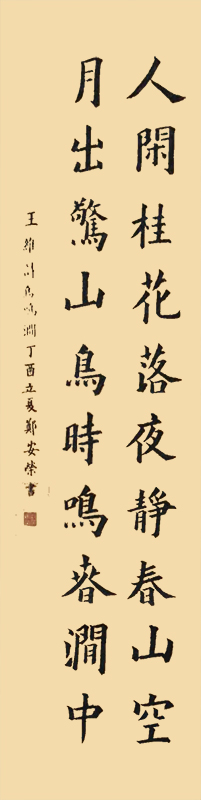 人閑桂花落夜靜春山空
月出驚山鳥時鳴春澗中
王維詩鳥鳴澗丁酉立夏鄭安榮書